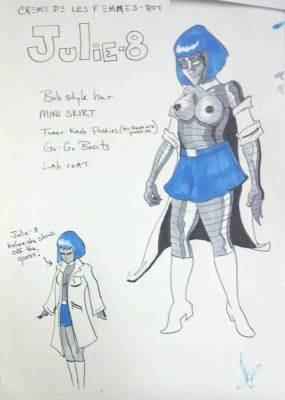 CREME DE LES FEMMES-BOT
JULIE-8
Bob style hair
MINI SKIRT
Tuner Knob Pasties (Yes those are pasties)
Go-Go Boots
Lab coat
Julie-8
before she shows
off the
goods.